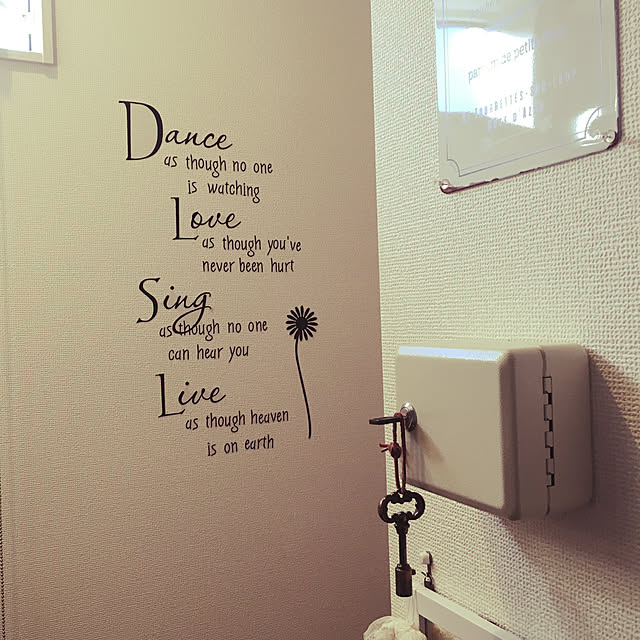 Dance
as though no one
is watching
Love
as though you've
never been hurt
Sing
as though no one
can hear you
Live
as though heaven
is on earth
de petit